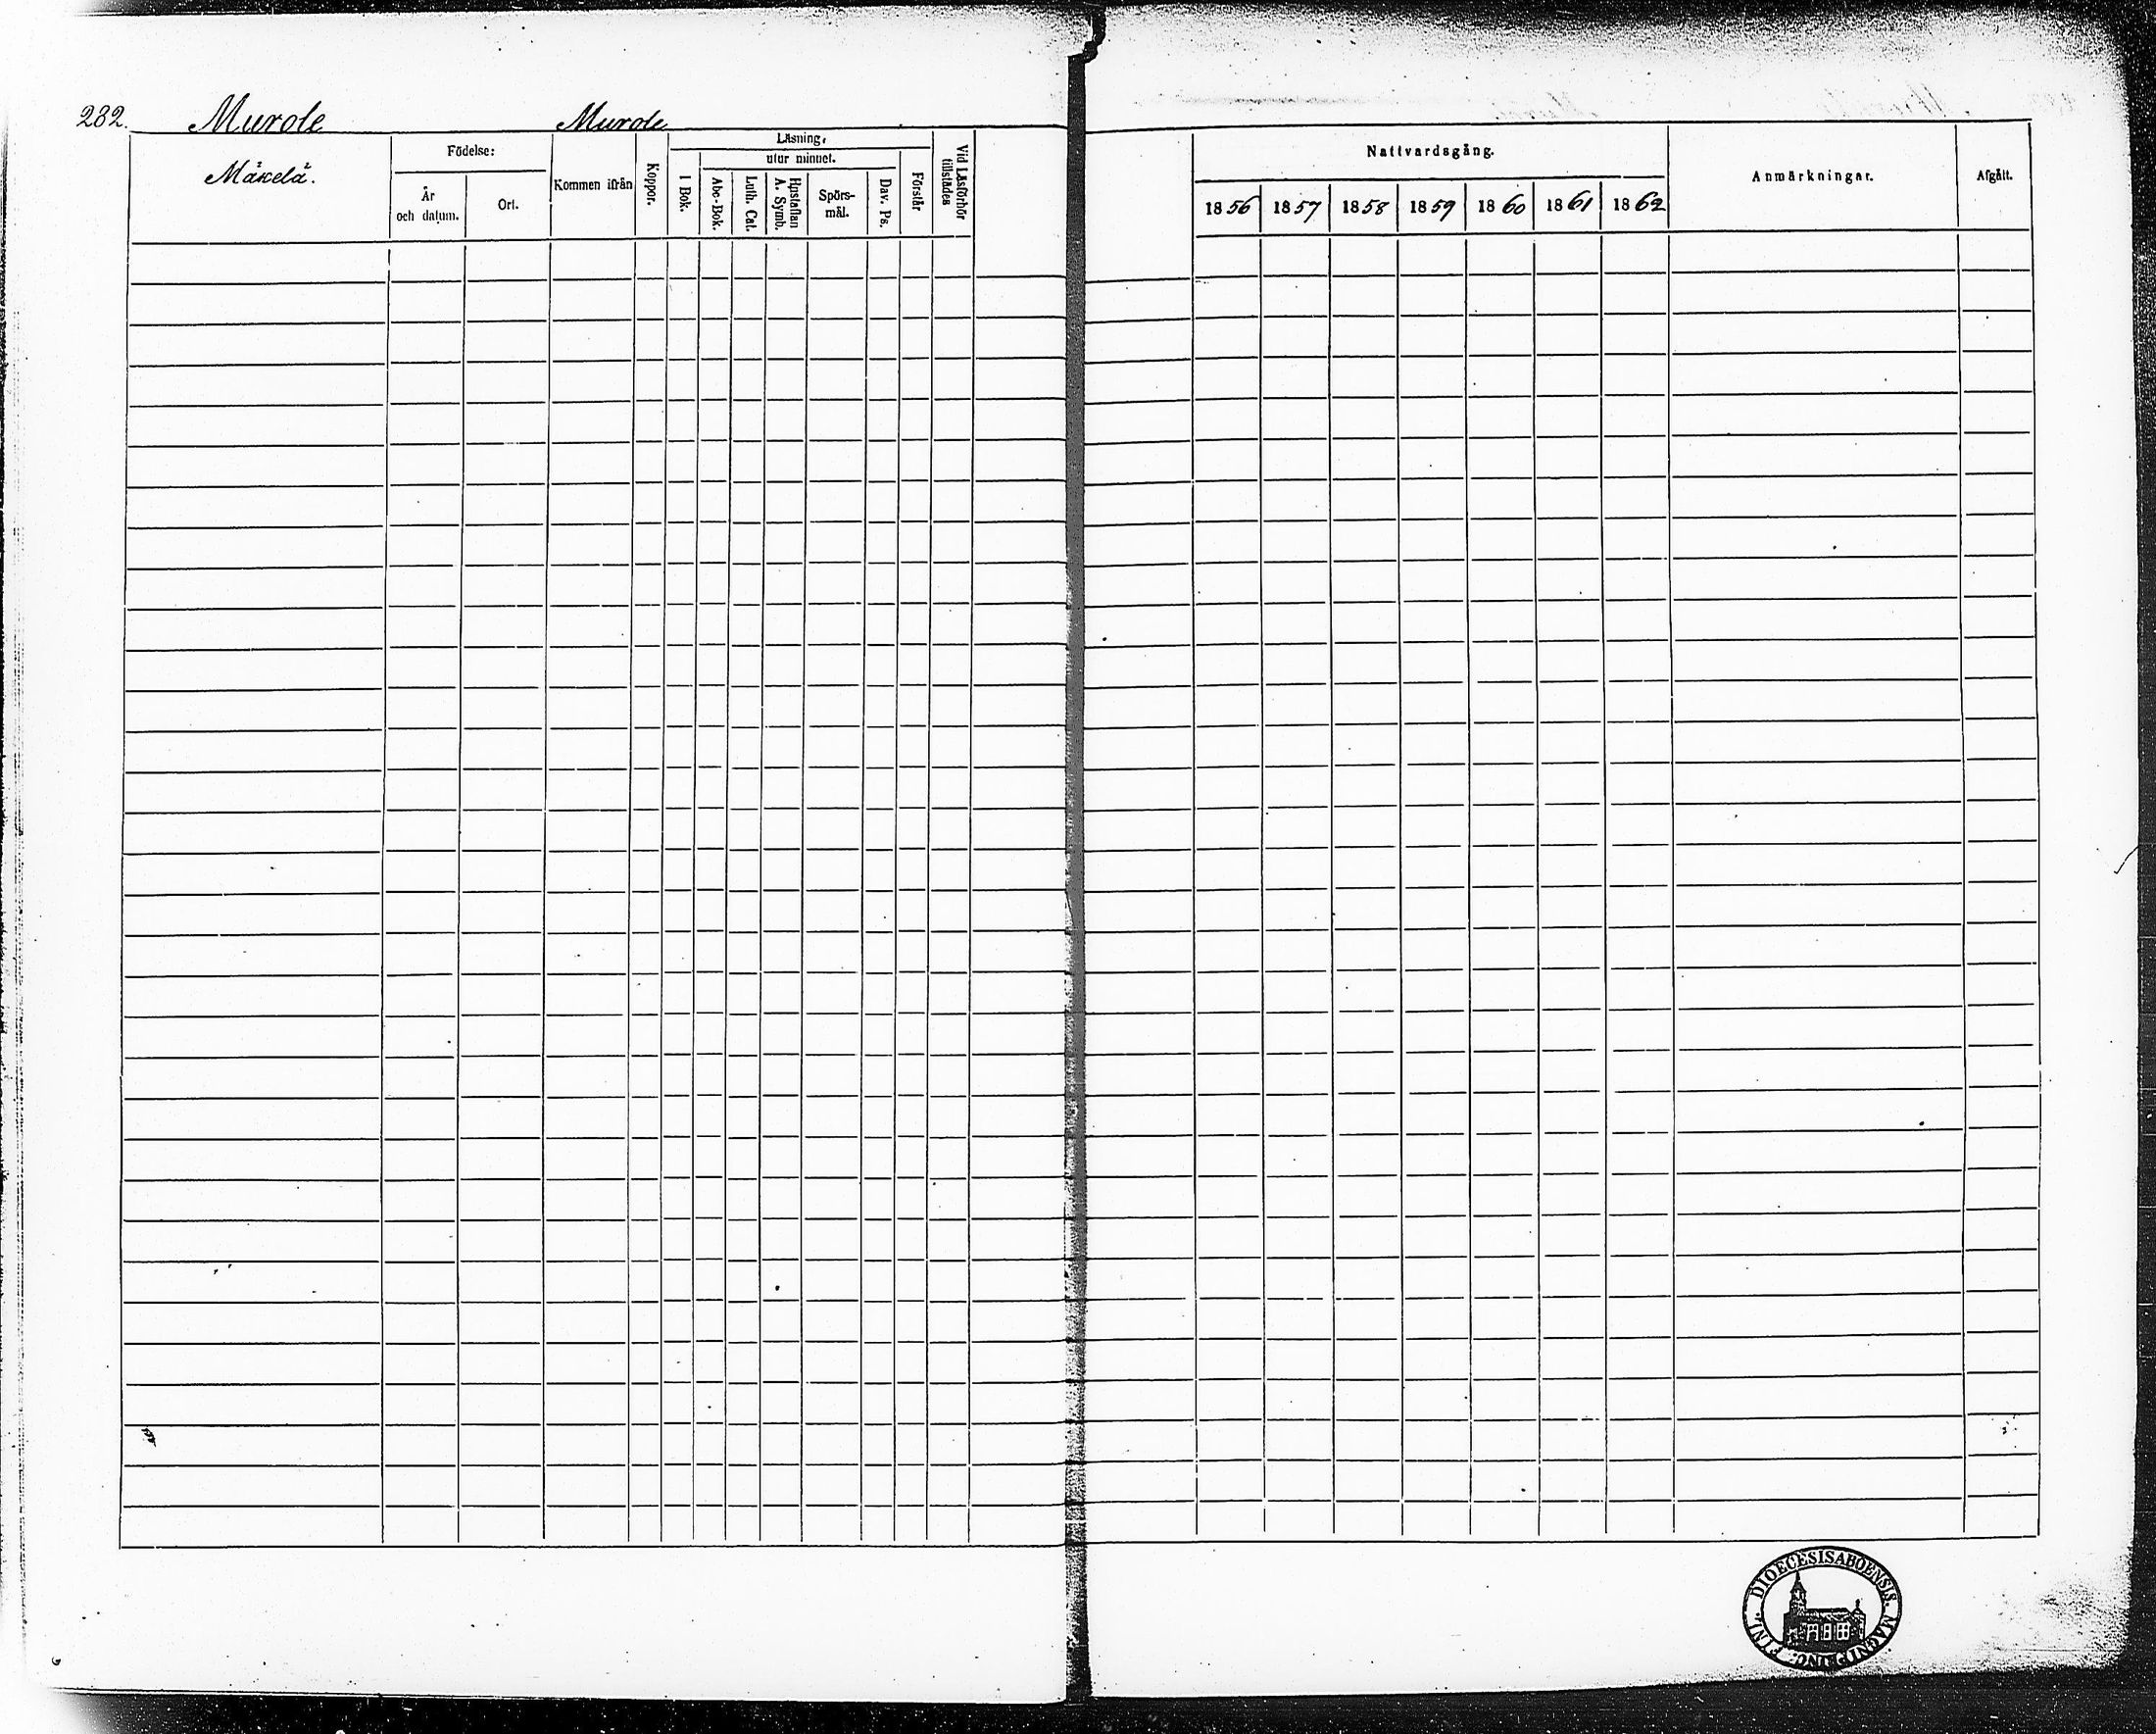 282. Murole Murole
Mäkelä.
Födelse:
År
och datum.
Ort.
Kommen ifrån
Koppor.
Läsning,
utur minnet.
I Bok.
Abc-Bok.
Luth. Cat.
Hustaflan
A. Symb.
Spörs-
mål.
Dav. Ps.
Förstår
Vid Läsförhör
tillstädes
Nattvardsgång.
1856 1857 1858 1859 1860 1861 1862
Anmärkningar.
Afgått.
DIOECESIS ABOENSIS. MAGNI PRINC. FINL.